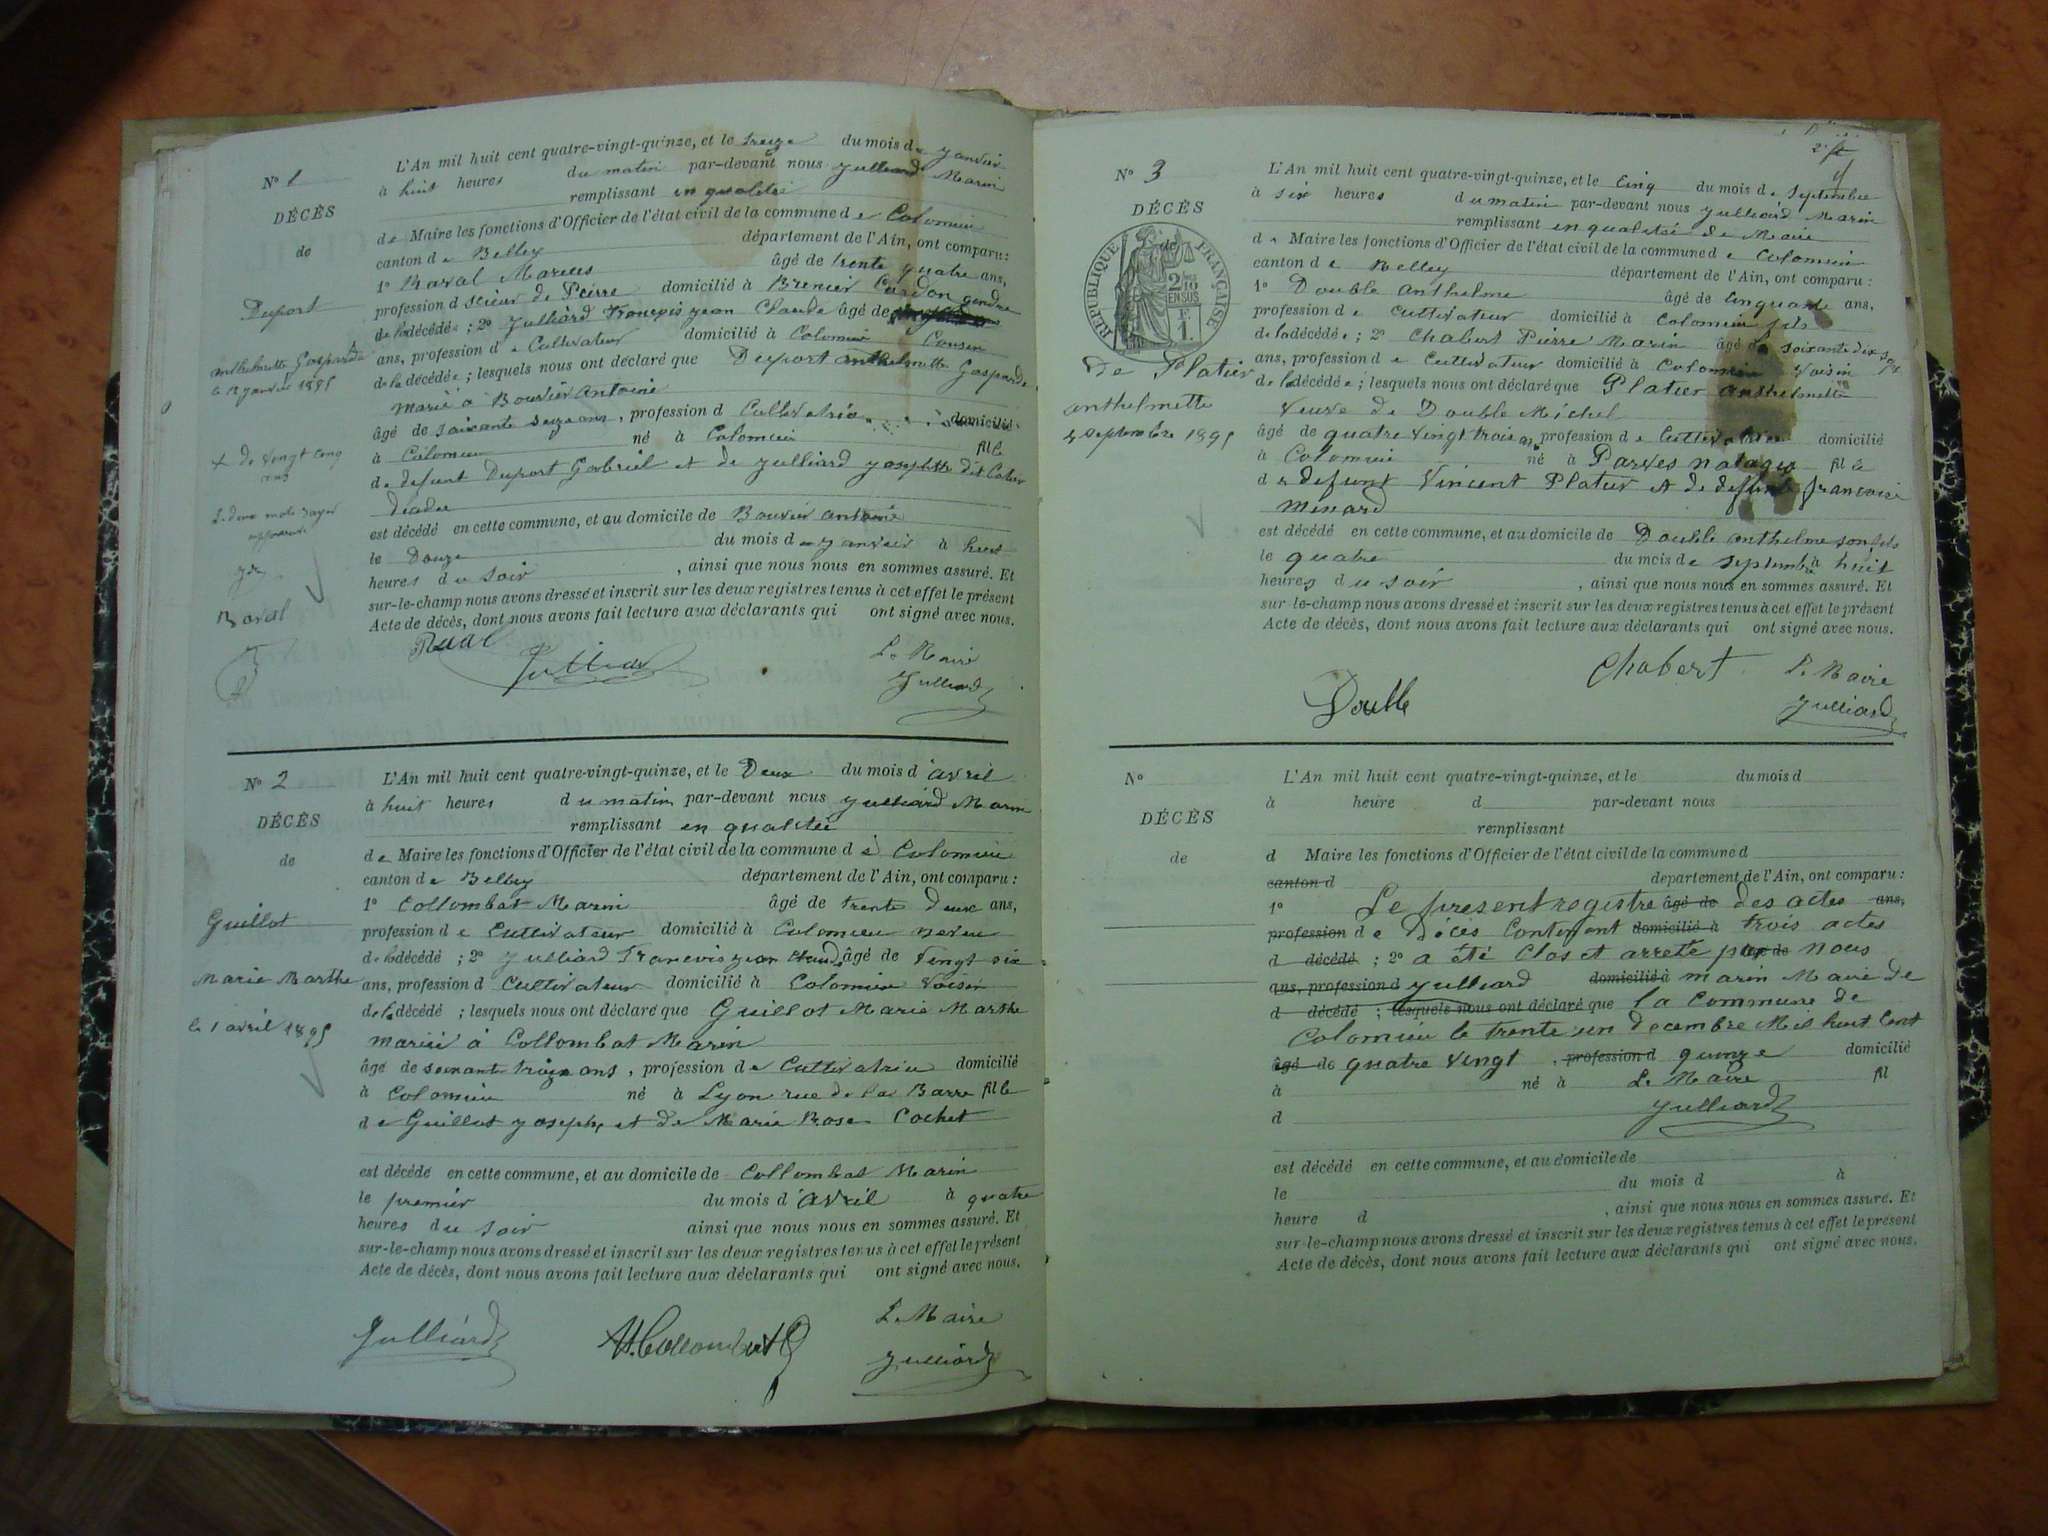 N° 1
DÉCÈS
de
Duport
anthelmette Gasparde
le 12 janvier 1895
+ de vingt cinq
ans
Raval
L'An mil huit cent quatre-vingt-quinze, et le treize du mois de janvier
à huit heures du matin par-devant nous Julliard Marin
remplissant en qualitée
de Maire les fonctions d'Officier de l'état civil de la commune de Colomieu
canton de Belley département de l'Ain, ont comparu:
1° Raval Marius âgé de trente quatre ans,
profession d scieur de Pierre domicilié à Brenier Cordon gendre
de la décédée; 2° Julliard François jean Claude âgé de
ans, profession de Cultivateur domicilié à Colomieu Cousin
de la décédée; lesquels nous ont déclaré que Duport anthelmette Gasparde
marié à Bouvier Antoine
âgé de soixante seize ans, profession d Cultivatrice domicilié
à Colomieu né à Colomieu fille
de defunt Duport Gabriel et de julliard josephte dit
est décédé en cette commune, et au domicile de Bouvier antoine
le Douze du mois de janvier à huit
heures du soir, ainsi que nous nous en sommes assuré. Et
sur-le-champ nous avons dressé et inscrit sur les deux registres tenus à cet effet le présent
Acte de décès, dont nous avons fait lecture aux déclarants qui ont signé avec nous.
Julliard
Le Maire
Julliard
N° 2
DÉCÈS
de
Guillot
Marie Marthe
le 1 avril 1895
L'An mil huit cent quatre-vingt-quinze, et le Deux du mois d'avril
à huit heures du matin par-devant nous Julliard Marin
remplissant en qualitée
de Maire les fonctions d'Officier de l'état civil de la commune d e Colomieu
canton de Belley département de l'Ain, ont comparu:
1° Collombat Marin âgé de trente deux ans,
profession de Cultivateur domicilié à Colomieu neveu
de la décédé; 2° Julliard Francois jean claude âgé de Vingt six
ans, profession d Cultivateur domicilié à Colomieu Voisin
de la décédé; lesquels nous ont déclaré que Guillot Marie Marthe
mariée à Collombat Marin
âgé de soixante treize ans, profession de Cultivatrice domicilié
à Colomieu né à Lyon rue de la Barre fille
de Guillot joseph, et de Marie Rose Cochet
est décédé en cette commune, et au domicile de Collombat Marin
le premier du mois d'avril à quatre
heures du soir ainsi que nous nous en sommes assuré. Et
sur-le-champ nous avons dressé et inscrit sur les deux registres tenus à cet effet le présent
Acte de décès, dont nous avons fait lecture aux déclarants qui ont signé avec nous.
Julliard
Le Maire
Julliard
N° 3
DÉCÈS
de
RÉPUBLIQUE FRANÇAISE
2/10 EN SUS
de Platier
anthelmette
4 septembre 1895
L'An mil huit cent quatre-vingt-quinze, et le Cinq du mois de septembre
à six heures du matin par-devant nous Julliard Marin
remplissant en qualitée de Maire
de Maire les fonctions d'Officier de l'état civil de la commune de Colomieu
canton de Belley département de l'Ain, ont comparu:
1° Double Anthelme âgé de Cinquante ans,
profession de Cultivateur domicilié à Colomieu fils
de la décédée; 2° Chabert Pierre Marin âgé de soixante dix sept
ans, profession de Cultivateur domicilié à Colomieu Voisin
de la décédée; lesquels nous ont déclaré que Platier anthelmette
veuve de Double Michel
âgé de quatre vingt trois ans, profession de Cultivatrice domicilié
à Colomieu né à Parves fille
de defunt Vincent Platier et de defunte françoise
Minard
est décédé en cette commune, et au domicile de Double anthelme son fils
le quatre du mois de septembre à huit
heures du soir, ainsi que nous nous en sommes assuré. Et
sur-le-champ nous avons dressé et inscrit sur les deux registres tenus à cet effet le présent
Acte de décès, dont nous avons fait lecture aux déclarants qui ont signé avec nous.
Double
Chabert
Le Maire
Julliard
N°
DÉCÈS
de
L'An mil huit cent quatre-vingt-quinze, et le du mois d
à heure d par-devant nous
remplissant
d Maire les fonctions d'Officier de l'état civil de la commune d
canton d département de l'Ain, ont comparu:
1° Le present registre âgé de des actes ans,
profession de Décès Contenant domicilié à trois actes
d décédé; 2° a été Clos et arreté par âgé de nous
ans, profession d Julliard domicilié à marin Maire de
d décédé; lesquels nous ont déclaré que la Commune de
Colomieu le trente un decembre Mil huit Cent
âgé de quatre vingt, profession d quinze domicilié
à né à Le Maire fil
d Julliard
est décédé en cette commune, et au domicile de
le du mois d à
heure d, ainsi que nous nous en sommes assuré. Et
sur-le-champ nous avons dressé et inscrit sur les deux registres tenus à cet effet le présent
Acte de décès, dont nous avons fait lecture aux déclarants qui ont signé avec nous.